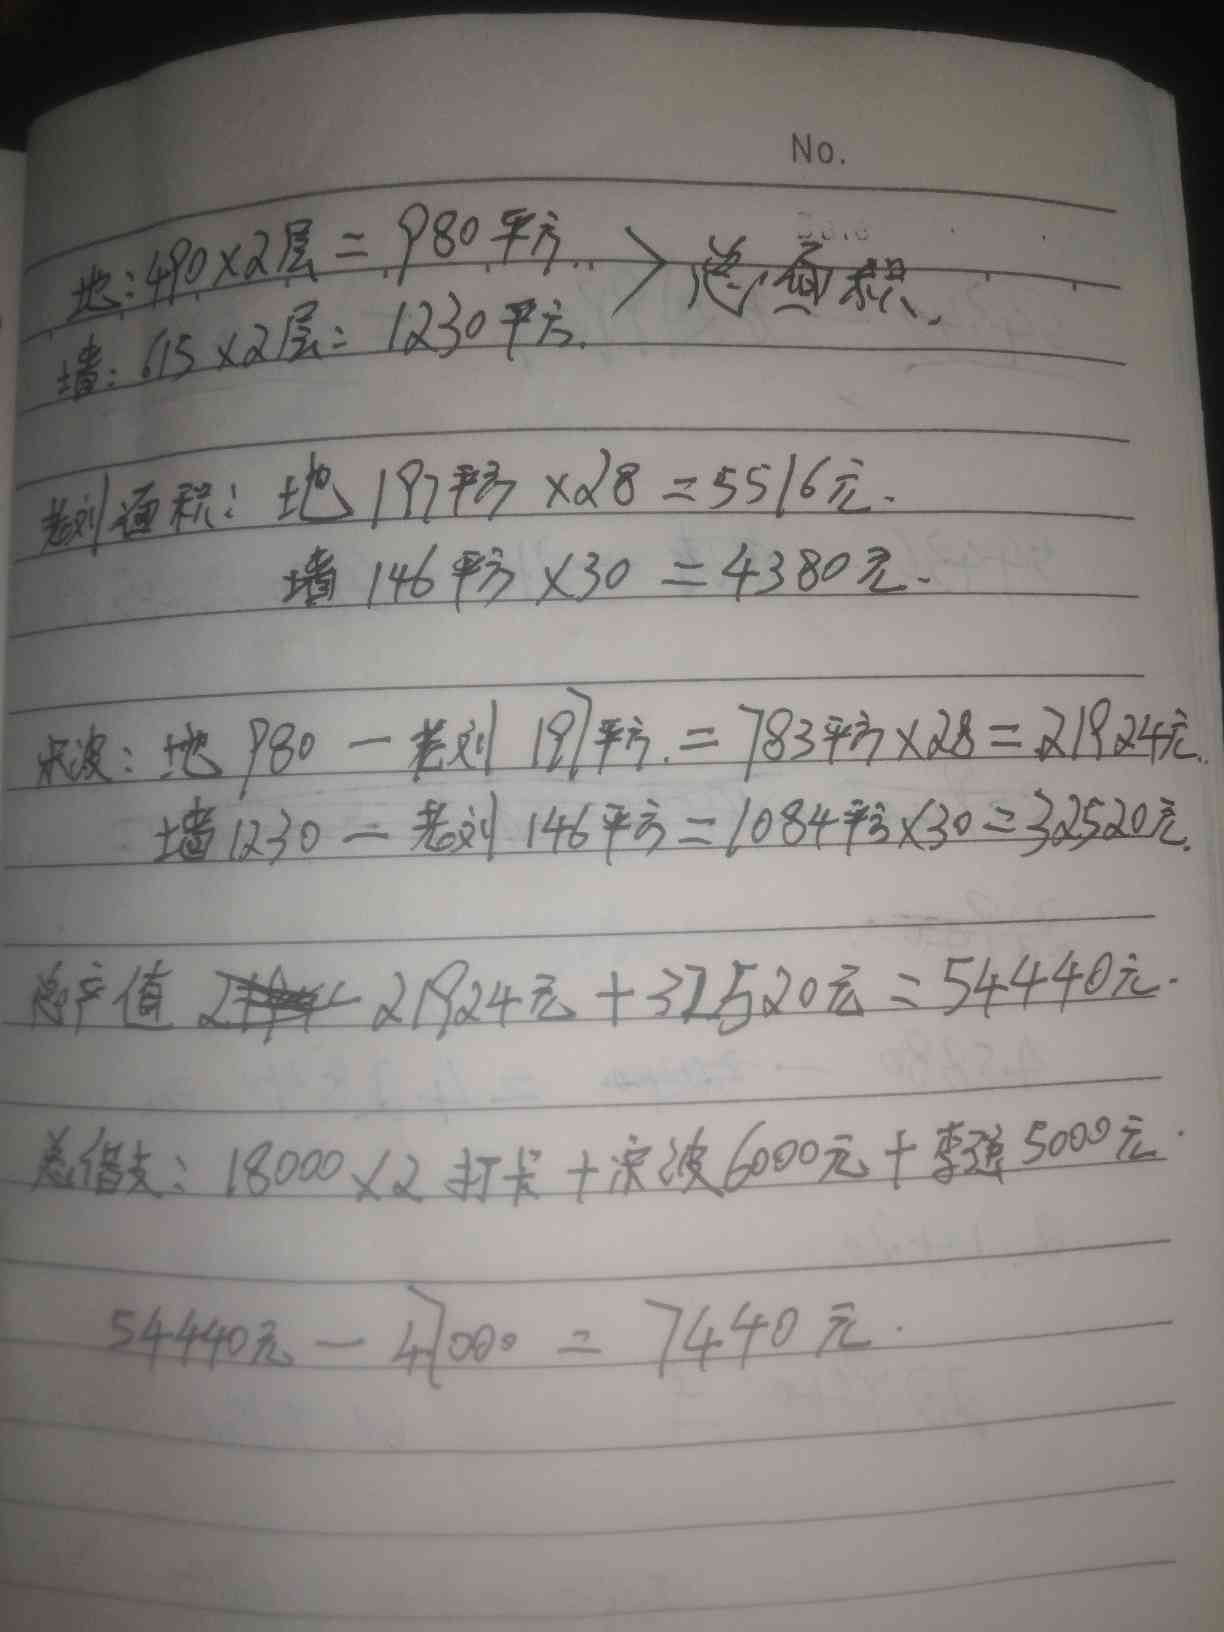 No.
地:490×2层=980平方. > 总面积.
墙:615×2层=1230平方.
老刘面积:地 197平方×28=5516元.
墙 146平方×30=4380元.
波:地 980-老刘 197平方.=783平方×28=21924元.
墙1230-老刘 146平方=1084平方×30=32520元.
总产值 21924元+32520元=54440元.
总借支:18000×2 打卡+波6000元+李 5000元.
54440元-47000=7440元.